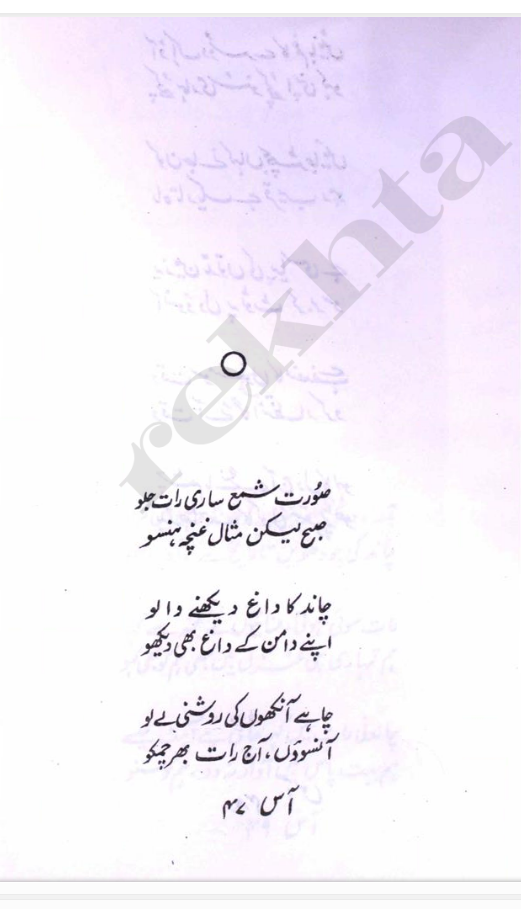 rekhta
صُورت شمع ساری رات جلو
صبح لیکن مثال غنچہ ہنسو
چاند کا داغ دیکھنے والو
اپنے دامن کے داغ بھی دیکھو
چاہے آنکھوں کی روشنی لے لو
آنسوؤں، آج رات بھر چمکو
آس ۴۷